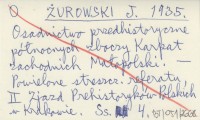 ŻUROWSKI J. 1935.
Osadnictwo przedhistoryczne
północnych zboczy Karpat
zachodnich Małopolski. —
Powielone streszcz. referatu
II Zjazd Prehistoryków Polskich
w Krakowie. Ss. 4.